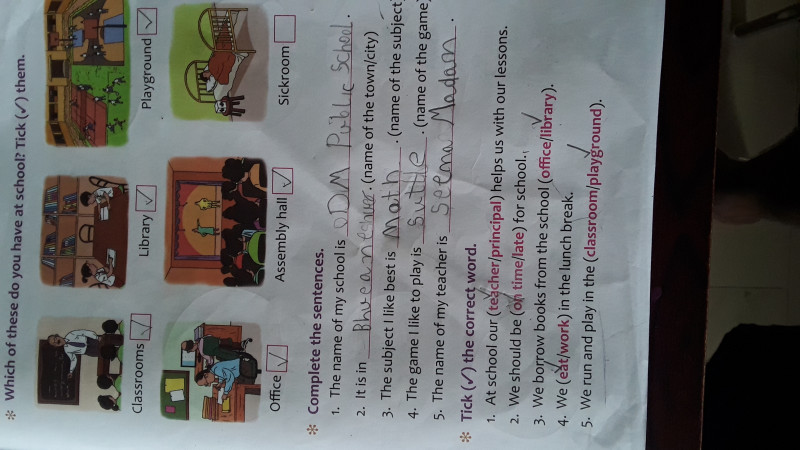 * Which of these do you have at school? Tick (✓) them.
Classrooms ✓ Library ✓ Playground ✓
Office ✓ Assembly hall ✓ Sickroom
* Complete the sentences.
1. The name of my school is ODM Public School.
2. It is in Bhucaneshwer. (name of the town/city)
3. The subject I like best is math. (name of the subject
4. The game I like to play is Suttle. (name of the game)
5. The name of my teacher is Seema Madam.
* Tick (✓) the correct word.
1. At school our (teacher/principal) helps us with our lessons.
2. We should be (on time/late) for school.
3. We borrow books from the school (office/library).
4. We (eat/work) in the lunch break.
5. We run and play in the (classroom/playground).